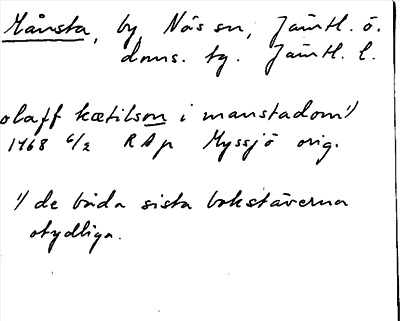 Månsta, by, Näs sn, Jämtl. ö.
doms. tg. Jämtl. l.
olaff kætilson i manstadom 1)
1468 6/2 RAp Myssjö orig.
1) de båda sista bokstäverna
otydliga.